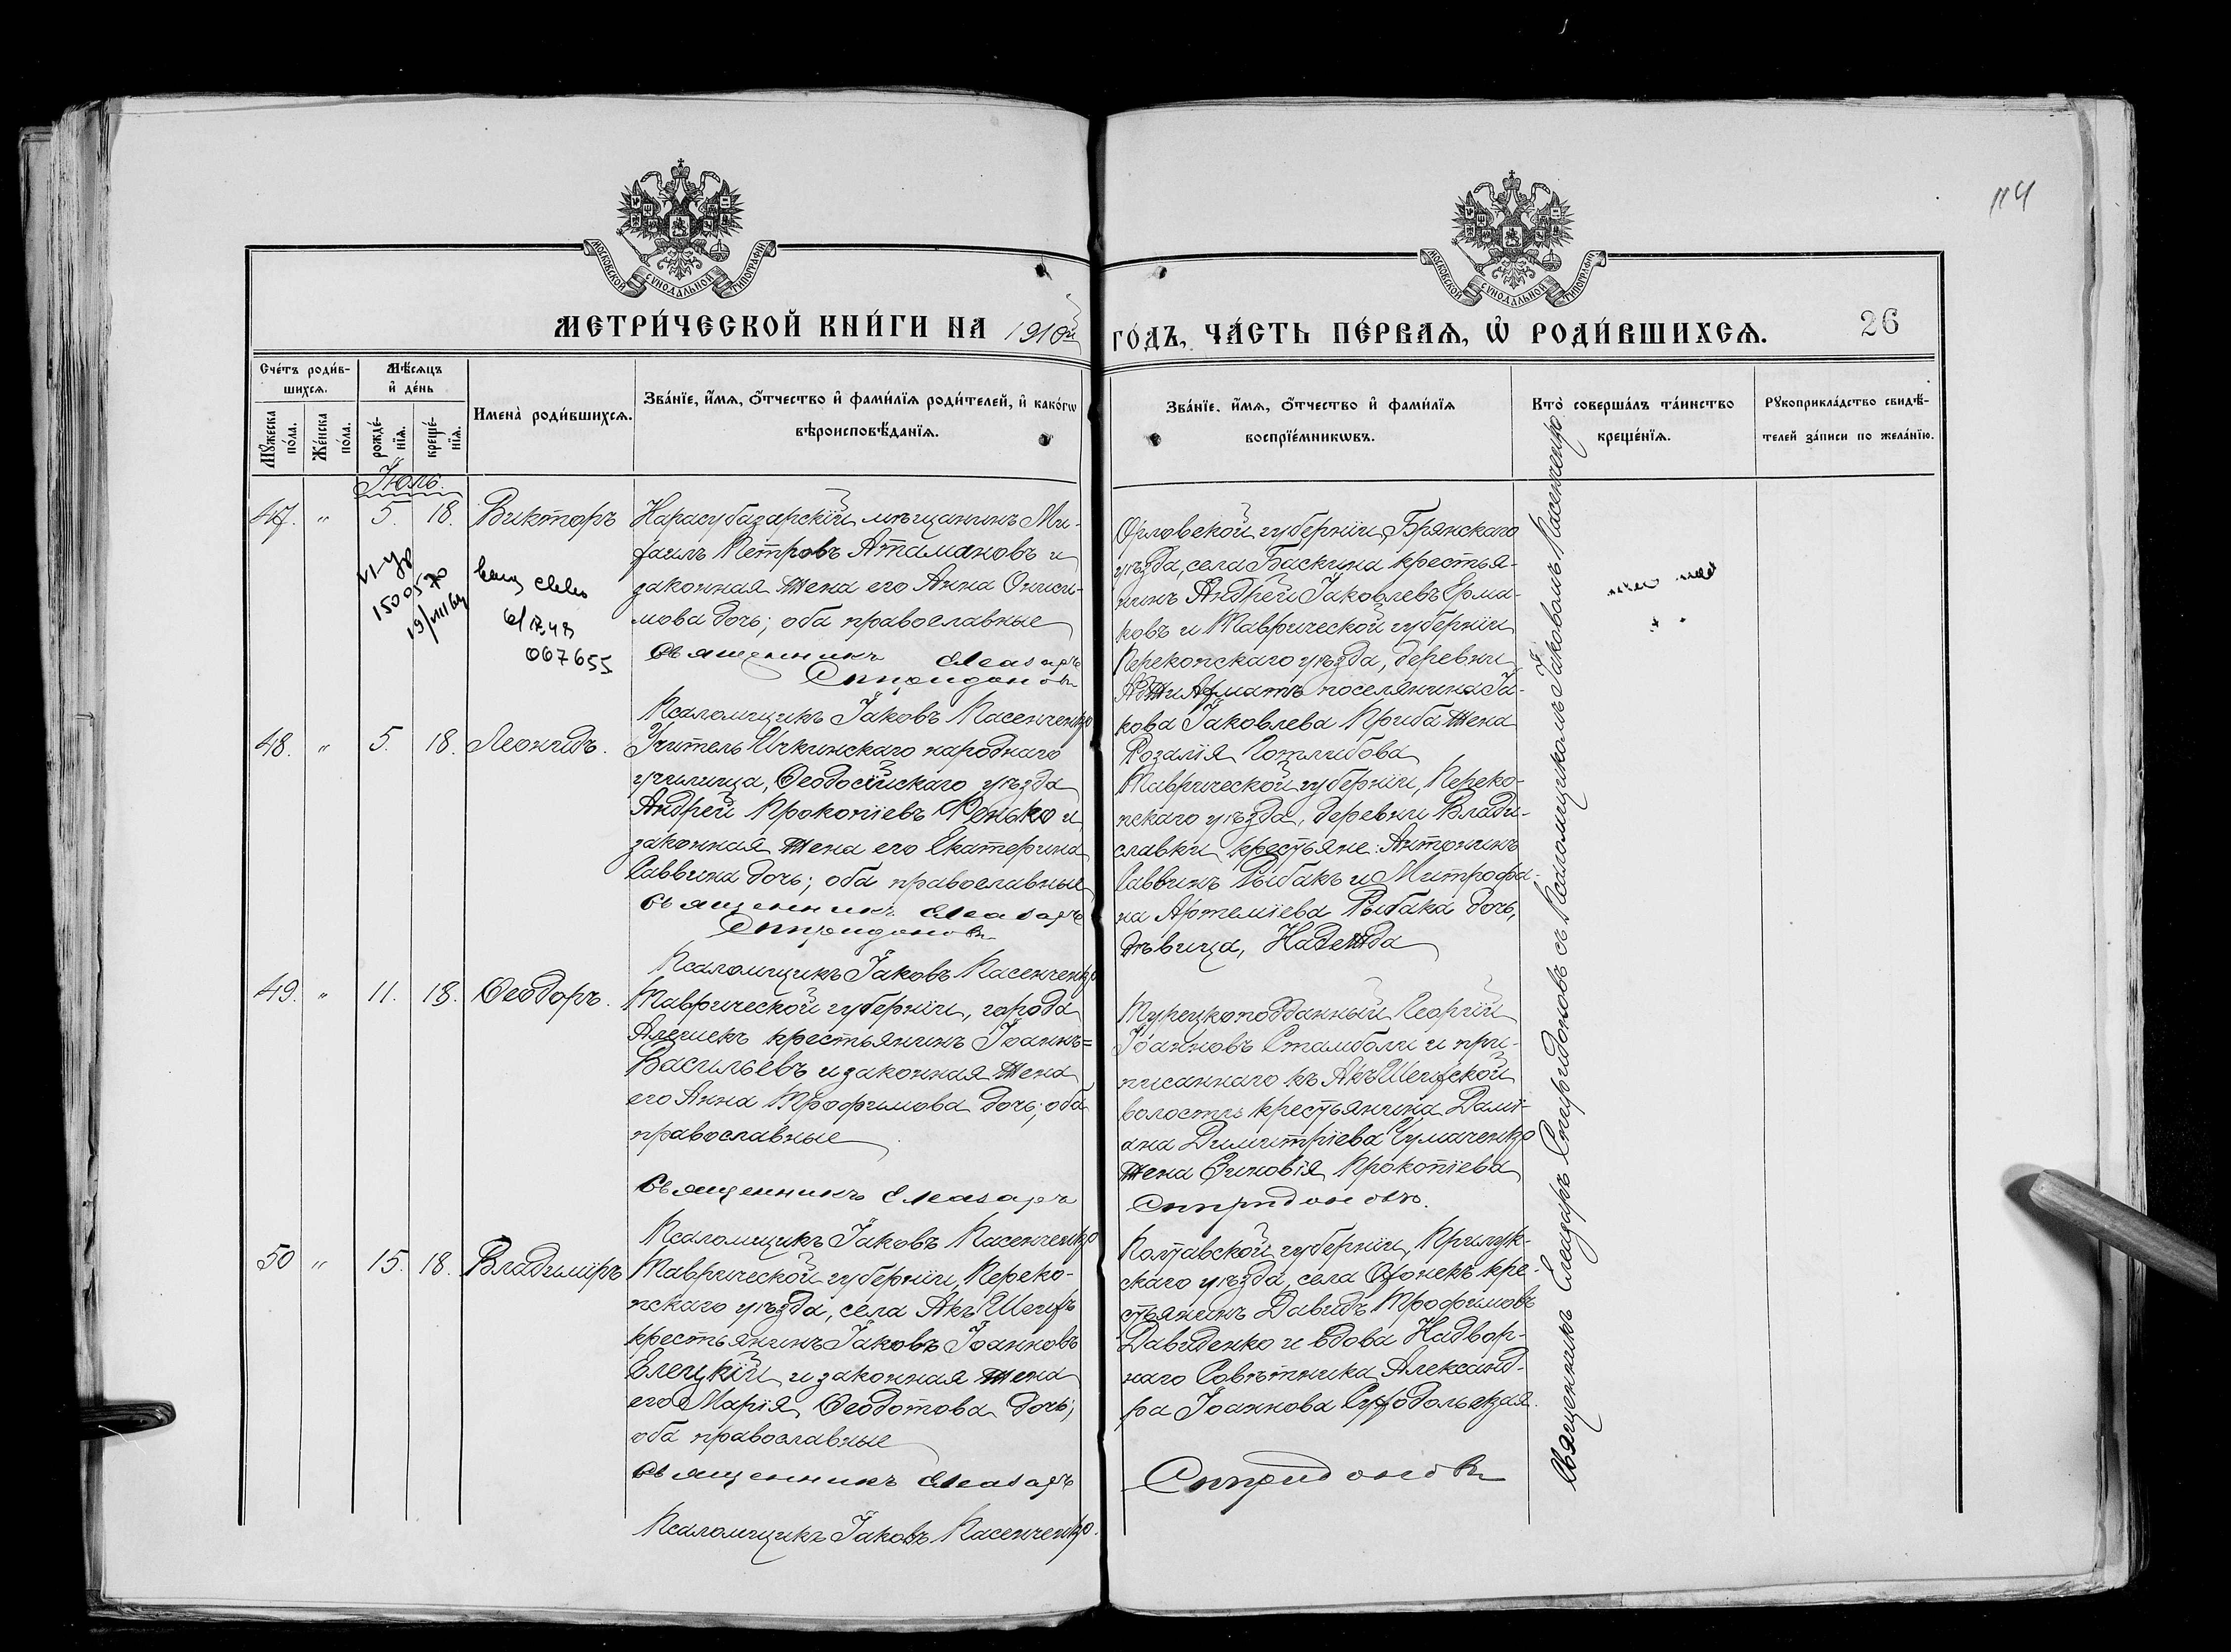 114
МОСКОВСКОЙ СѴНОДАЛЬНОЙ ТИПОГРАФІИ
МОСКОВСКОЙ СѴНОДАЛЬНОЙ ТИПОГРАФІИ
МЕТРИ́ЧЕСКОЙ КНИ́ГИ НА 1910й
ГО́ДЪ, ЧА́СТЬ ПЕ́РВАѦ, Ѽ РОДИ́ВШИХСѦ.
26
Сче́тъ роди́в-
шихсѧ.
Мꙋ́жеска по́ла.
Же́нска по́ла.
Мѣ́сѧцъ
и҆ де́нь
рожде́-
нїѧ.
креще́-
нїѧ.
Имена̀ роди́вшихсѧ.
Зва́нїе, и҆́мѧ, ѻ҆́тчество и҆ фами́лїѧ роди́телей, и҆ како́гѡ
вѣроисповѣ́данїѧ.
Зва́нїе, и҆́мѧ, ѻ҆́тчество и҆ фами́лїѧ
воспрїе́мникѡвъ.
Кто̀ соверша́лъ та́инство
креще́нїѧ.
Рꙋкоприкла́дство свидѣ́-
телей за́писи по жела́нїю.
Іюль.
47. " 5. 18. Викторъ
Карасубазарскій мѣщанинъ Ми-
хаилъ Петровъ Атамановъ и
законная жена его Анна Ониси-
мова дочь; оба православные
Священникъ Елеазаръ
Спиридоновъ
Псаломщикъ Іаковъ Касенченко
1500570
067655
Орловской губерніи, Брянскаго
уѣзда, села Баскина крестья-
нинъ Андрей Іаковлевъ Ерма-
ковъ и Таврической губерніи
Перекопскаго уѣзда, деревни
поселянина Іа-
кова Іаковлева Приба жена
Розалія Готлибова
48. " 5. 18. Леонидъ.
Учитель Ичкинскаго народнаго
училища, Ѳеодосійскаго уѣзда
Андрей Прокопіевъ Фенько и
законная жена его Екатерина
Саввина дочь; оба православные
Священникъ Елеазаръ
Спиридоновъ
Псаломщикъ Іаковъ Касенченко
Таврической губерніи, Переко-
пскаго уѣзда, деревни Влади-
славки крестьяне: Антонинъ
Саввинъ Рыбакъ и Митрофа-
на Артеміева Рыбака дочь,
дѣвица, Надежда
49. " 11. 18. Ѳеодоръ.
Таврической губерніи, города
Алешекъ крестьянинъ Іоаннъ=
Васильевъ и законная жена
его Анна Трофимова дочь; оба
православные
Священникъ Елеазаръ
Псаломщикъ Іаковъ Касенченко
Турецкоподданный Георгій
Іоанновъ Стамболи и при-
писаннаго къ Акъ Шеихской
волости крестьянина Дамі-
ана Димитріева Чумаченко
жена Зиновія Прокопіева
Спиридоновъ.
50 " 15. 18. Владиміръ
Таврической губерніи, Переко-
пскаго уѣзда, села Акъ Шеихъ
крестьянинъ Іаковъ Іоанновъ
Елецкій и законная жена
его Марія Ѳеодотова дочь;
оба православные
Священникъ Елеазаръ
Псаломщикъ Іаковъ Касенченко.
Полтавской губерніи, Прилук-
скаго уѣзда, села кре-
стьянинъ Давидъ Трофимовъ
Давиденко и вдова Надвор-
наго Совѣтника Александ-
ра Іоаннова Суходольская.
Спиридоновъ
Священникъ Елеазаръ Спиридоновъ съ Псаломщикомъ Іаковомъ Касенченко